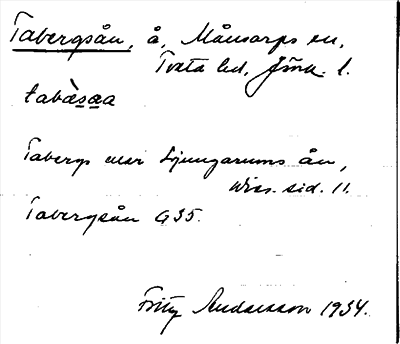 Tabergsån, å, Månsarps sn,
Tveta hd, Jönk. l.
tabæ̀sa̲a
Tabergs eller Ljungarums ån,
Wies. sid. 11.
Tabergsån G35.
Fritz Andersson 1934.